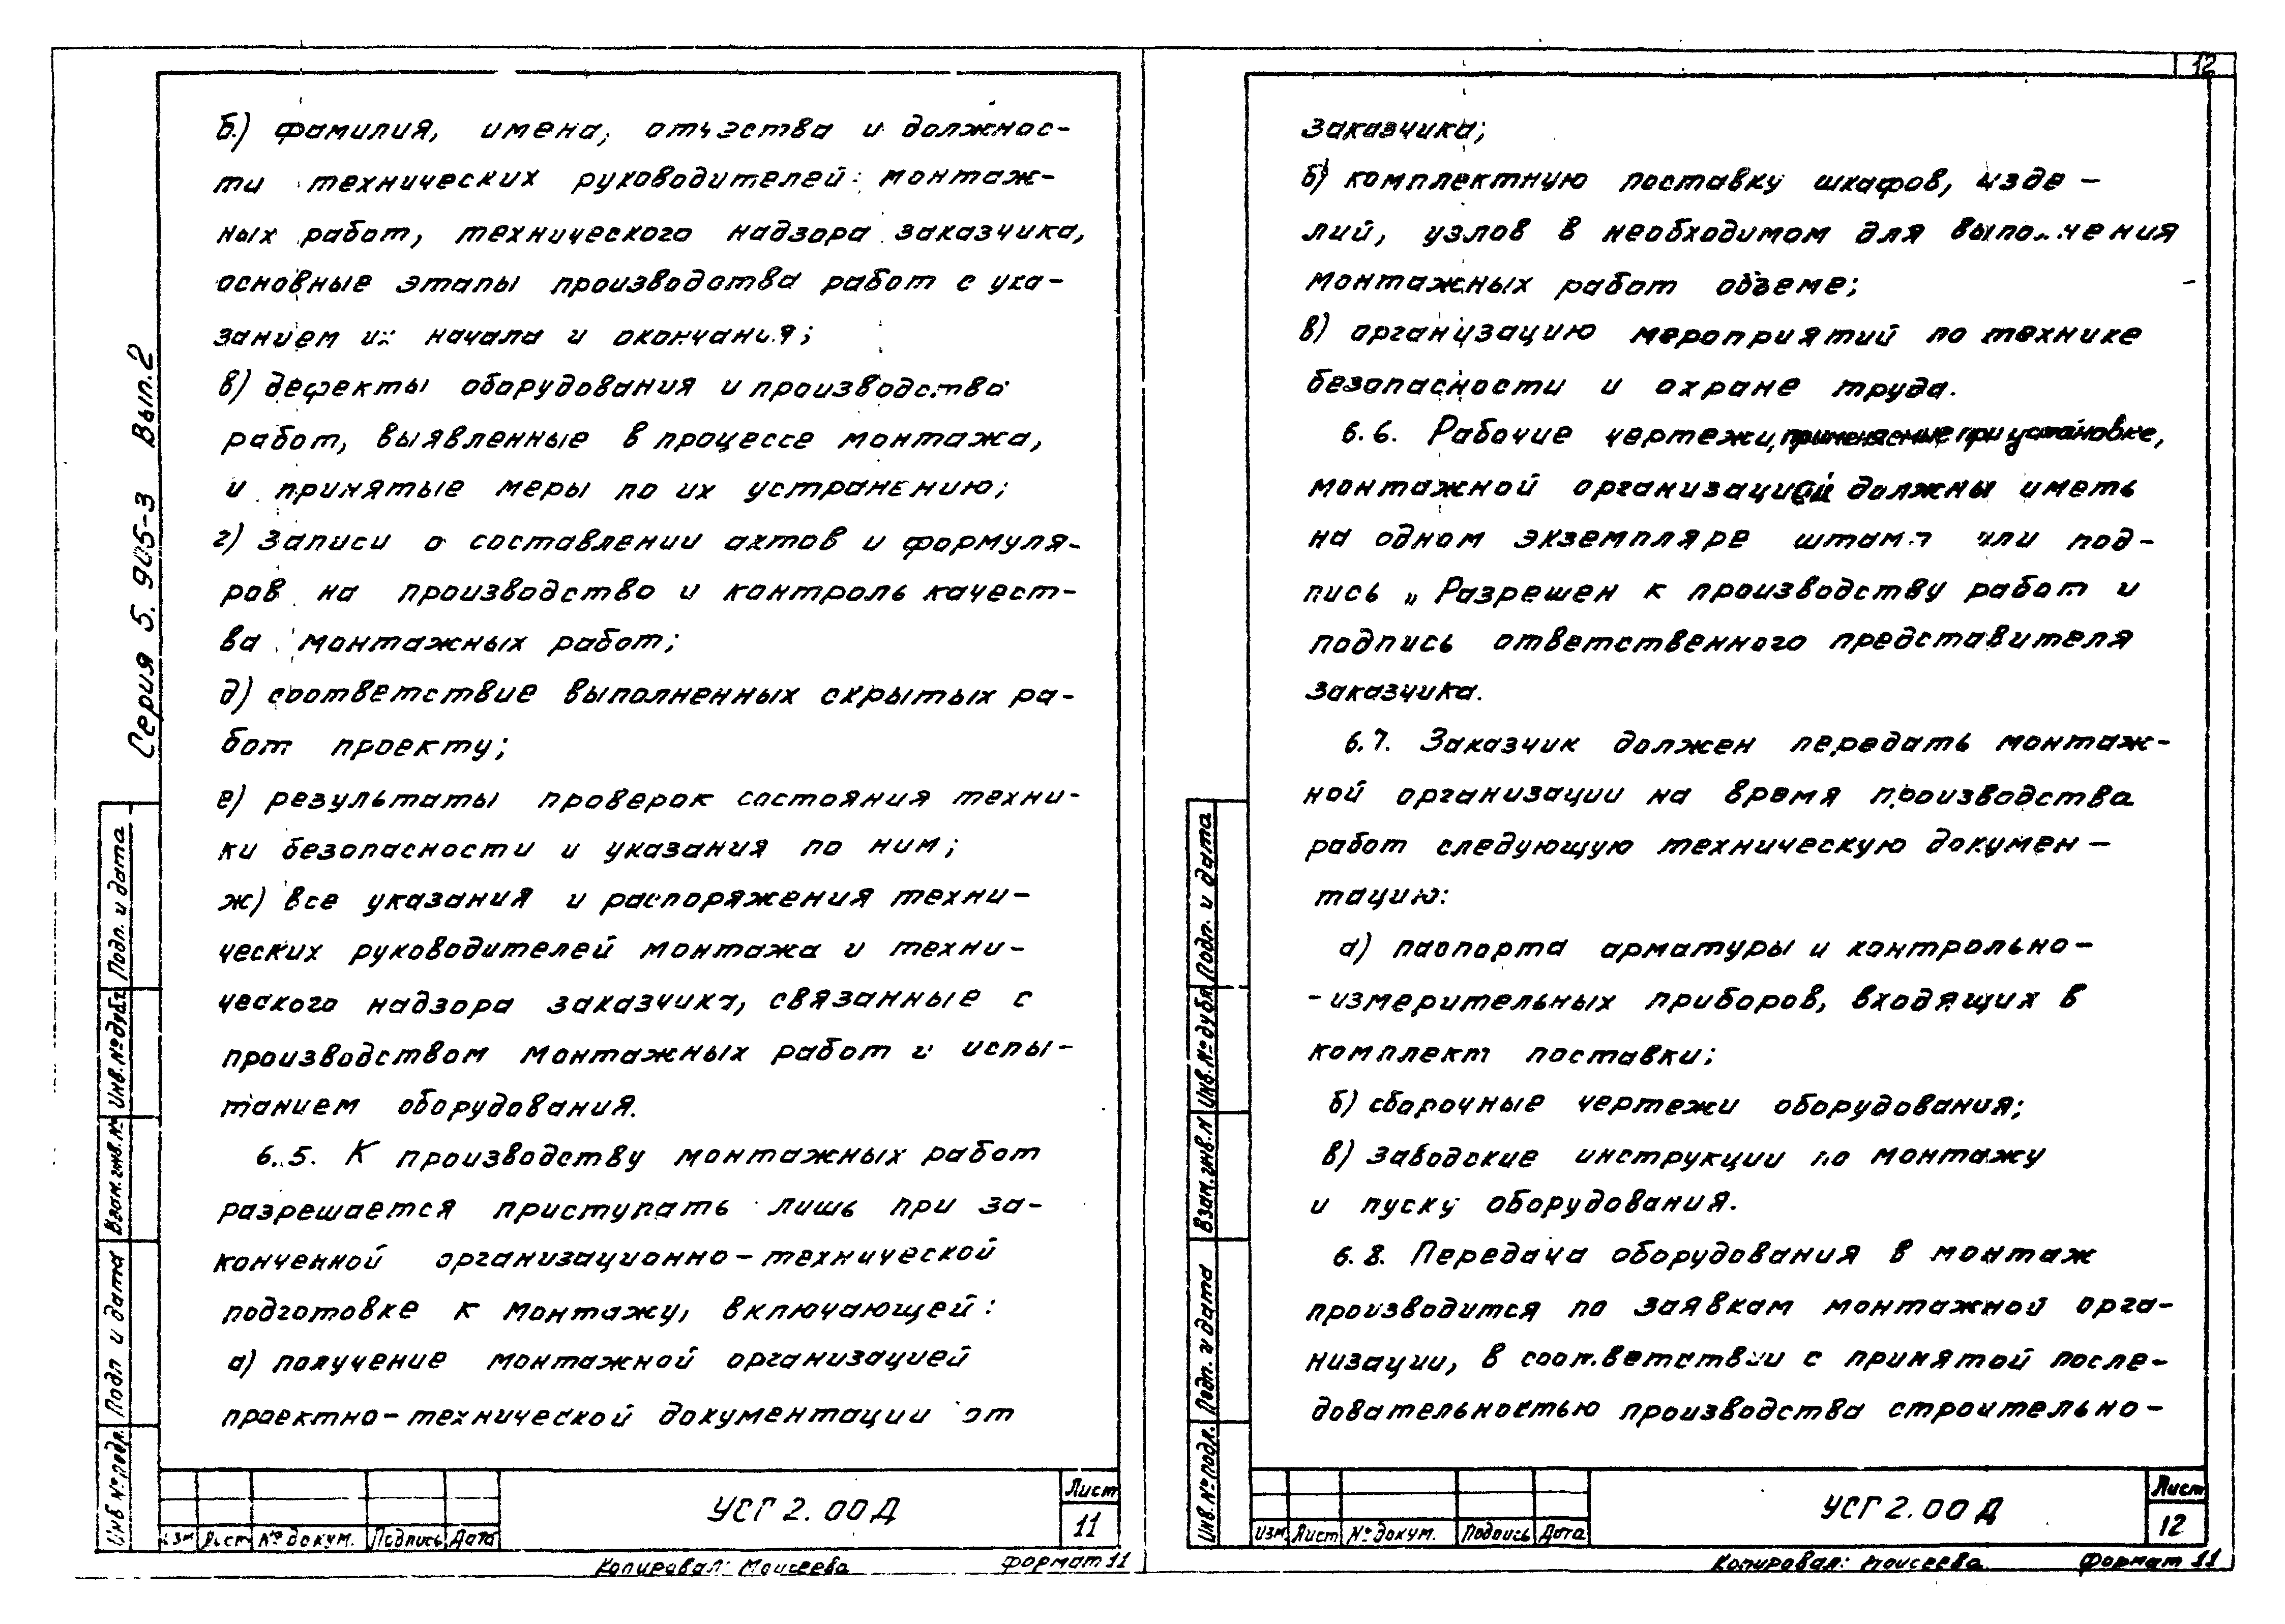 12
б.) фамилия, имена, отчества и должнос-
ти технических руководителей монтаж-
ных работ, технического надзора заказчика,
основные этапы производства работ с ука-
занием их начала и окончания;
в) дефекты оборудования и производства
работ, выявленные в процессе монтажа,
и принятые меры по их устранению;
г) записи о составлении актов и формуля-
ров на производство и контроль качест-
ва монтажных работ;
д) соответствие выполненных скрытых ра-
бот проекту;
е) результаты проверок состояния техни-
ки безопасности и указания по ним;
ж) все указания и распоряжения техни-
ческих руководителей монтажа и техни-
ческого надзора заказчика, связанные с
производством монтажных работ и испы-
танием оборудования.
6.5. К производству монтажных работ
разрешается приступать лишь при за-
конченной организационно-технической
подготовке к монтажу, включающей:
а) получение монтажной организацией
проектно-технической документации от
Серия 5.905-3 Вып.2
Подп. и дата
Инв.№дубл
Взам.инв.№
Подп и дата
Инв №подл.
Изм Лист №докум. Подпись Дата
УСГ 2.00Д
Лист
11
Копировал: Моисеева формат 11
заказчика;
б) комплектную поставку шкафов, изде-
лий, узлов в необходимом для выполнения
монтажных работ объеме;
в) организацию мероприятий по технике
безопасности и охране труда.
6.6. Рабочие чертежи, применяемые при установке,
монтажной организацией должны иметь
на одном экземпляре штамп или под-
пись „ Разрешен к производству работ и
подпись ответственного представителя
заказчика.
6.7. Заказчик должен передать монтаж-
ной организации на время производства
работ следующую техническую докумен-
тацию:
а) паспорта арматуры и контрольно-
-измерительных приборов, входящих в
комплект поставки;
б) сборочные чертежи оборудования;
в) заводские инструкции по монтажу
и пуску оборудования.
6.8. Передача оборудования в монтаж
производится по заявкам монтажной орга-
низации, в соответствии с принятой после-
довательностью производства строительно-
Подп. и дата
Инв.№дубл
Взам.инв.№
Подп. и дата
Инв.№подл.
Изм Лист №докум. Подпись Дата
УСГ 2.00Д
Лист
12
Копировал: Моисеева Формат 11